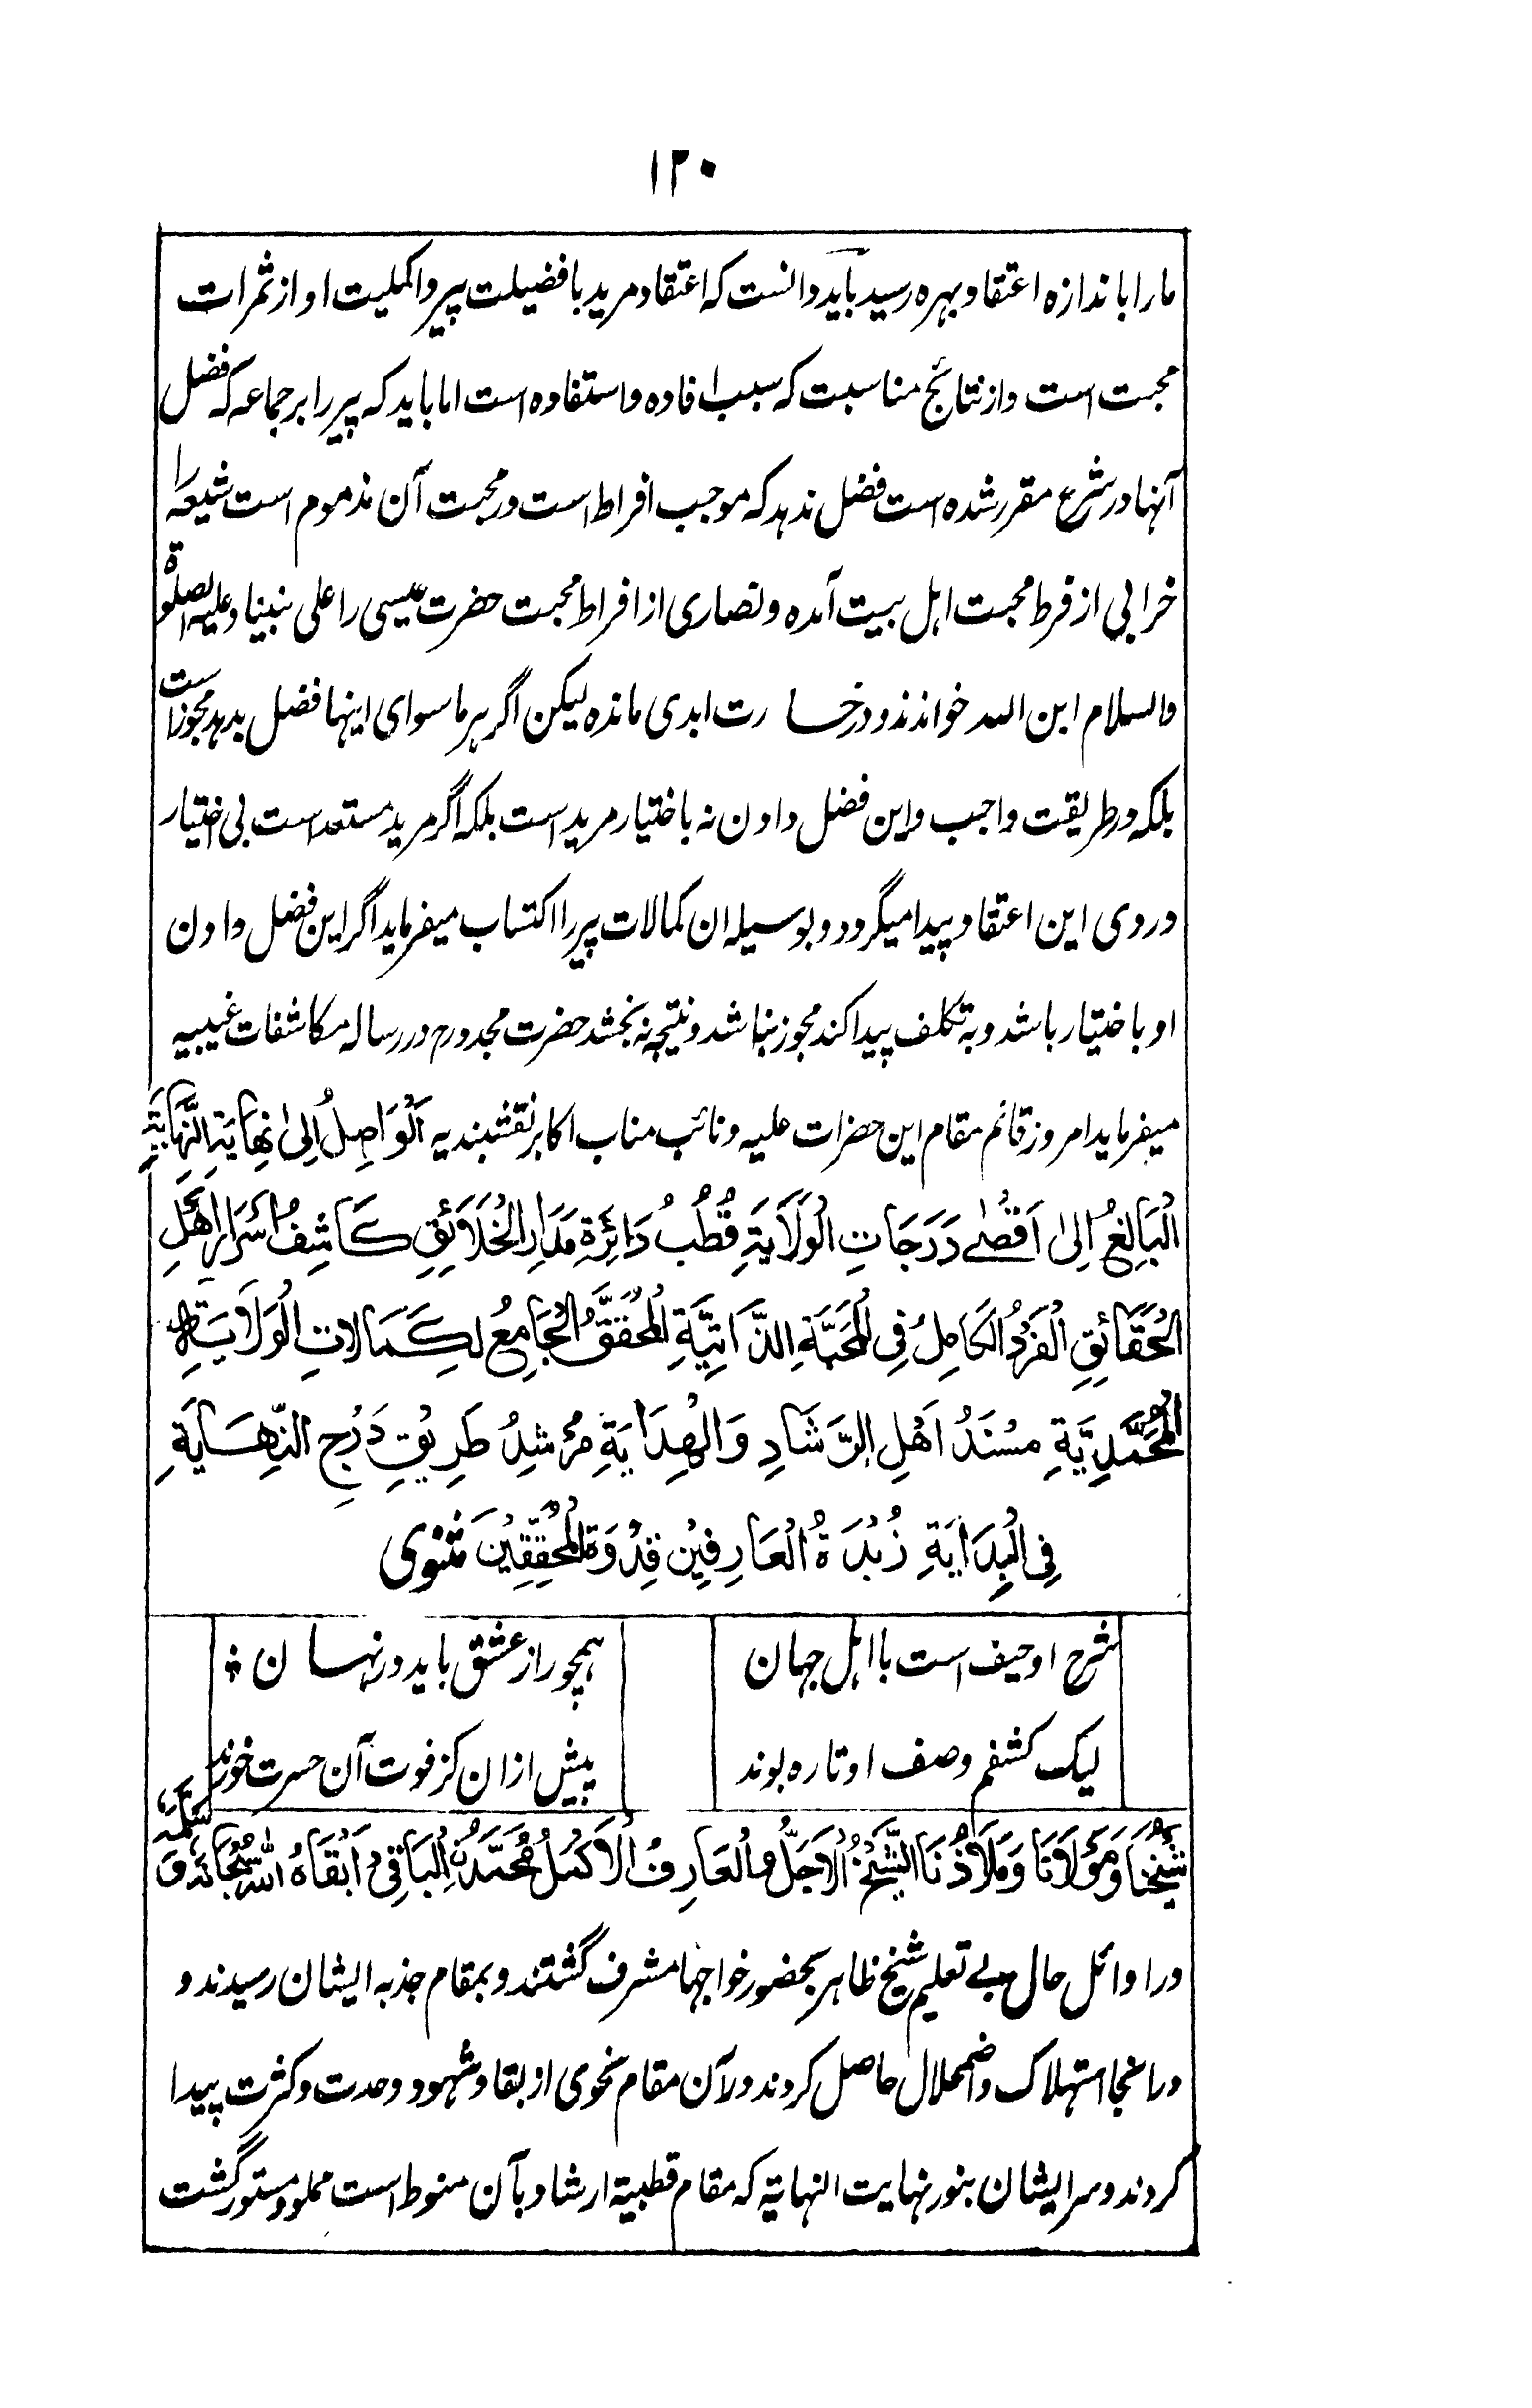 ۱۲۰
ما را باندازه اعتقاد بهره رسید باید دانست که اعتقاد مرید بافضیلت پیر و اکملیت او از ثمرات
محبت است و از نتائج مناسبت که سبب افاده و استفاده است اما باید که پیر را بر جماعه که فضل
آنها در شرع مقرر شده است فضل ندهد که موجب افراط است در محبت آن مذموم است شیعه را
خرابی از فرط محبت اهل بیت آمده و نصاری از افراط محبت حضرت عیسی را علی نبینا و علیه الصلوة
والسلام ابن الله خواندند و در خسارت ابدی مانده لیکن اگر بر ماسوای اینها فضل بدهد مجوز است
بلکه در طریقت واجب و این فضل دادن نه باختیار مرید است بلکه اگر مرید مستعد است بی اختیار
در وی این اعتقاد پیدا میگردد و بوسیله ان کمالات پیر را اکتساب میفرماید اگر این فضل دادن
او باختیار باشد و به تکلف پیدا کند مجوز نباشد و نتیجه نه بخشد حضرت مجدد رح در رساله مکاشفات غیبیه
میفرماید امروز قائم مقام این حضرات علیه و نائب مناب اکابر نقشبندیه اَلْوَاصِلُ اِلیٰ نِهَایَةِ النِّهَایَةِ
الْبَالِغُ اِلیٰ اَقْصٰی دَرَجَاتِ الْوِلَایَةِ قُطْبُ دَائِرَةِ مَدَارِ الْخَلَائِقِ کَاشِفُ اَسْرَارِ اَهْلِ
الْحَقَائِقِ الْفَرْدُ الْکَامِلُ فِی الْمَحَبَّةِ الذَّاتِیَّةِ الْمُحَقِّقُ الْجَامِعُ لِکَمَالَاتِ الْوِلَایَةِ
الْمُحَمَّدِیَّةِ مَسْنَدُ اَهْلِ الرَّشَادِ وَالْهِدَایَةِ مُرْشِدُ طَرِیْقِ دَرْجِ النِّهَایَةِ
فِی الْبِدَایَةِ زُبْدَةُ الْعَارِفِیْنَ قِدْوَةُ الْمُحَقِّقِیْنَ مثنوی
شرح او حیف است با اهل جهان همچو راز عشق باید در نهان
لیک گفتم وصف او تا ره بوند پیش ازان کز فوت آن حسرت خورند
شَیْخُنَا وَمَوْلَانَا وَمَلَاذُنَا الشَّیْخُ الْاَجَلُّ وَالْعَارِفُ الْاَکْمَلُ مُحَمَّدُنِ الْبَاقِیْ اَبْقَاهُ اللّٰهُ سُبْحَانَهُ وَ سَلَّمَهُ
در اوائل حال بے تعلیم شیخ ظاهر بحضور خواجها مشرف گشتند و بمقام جذبه ایشان رسیدند و
در انجا استهلاک و اضمحلال حاصل کردند و در آن مقام نحوی از بقا و شهود وحدت و کثرت پیدا
کردند و سر ایشان بنور نهایت النهایة که مقام قطبیة ارشاد بآن منوط است مملو و مستور گشت